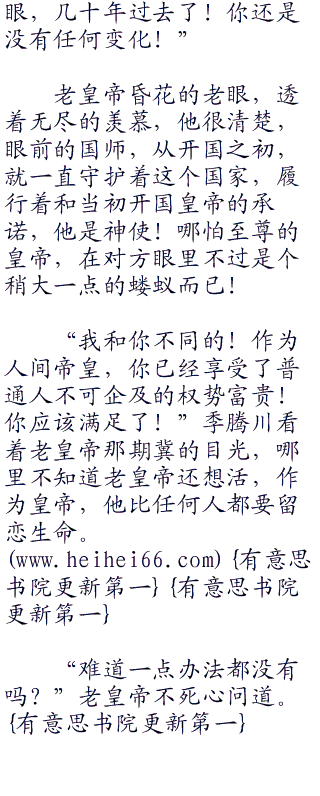 眼，几十年过去了！你还是
没有任何变化！”
老皇帝昏花的老眼，透
着无尽的羡慕，他很清楚，
眼前的国师，从开国之初，
就一直守护着这个国家，履
行着和当初开国皇帝的承
诺，他是神使！哪怕至尊的
皇帝，在对方眼里不过是个
稍大一点的蝼蚁而已！
“我和你不同的！作为
人间帝皇，你已经享受了普
通人不可企及的权势富贵！
你应该满足了！”季腾川看
着老皇帝那期冀的目光，哪
里不知道老皇帝还想活，作
为皇帝，他比任何人都要留
恋生命。
(www.heihei66.com){有意思
书院更新第一}{有意思书院
更新第一}
“难道一点办法都没有
吗？”老皇帝不死心问道。
{有意思书院更新第一}